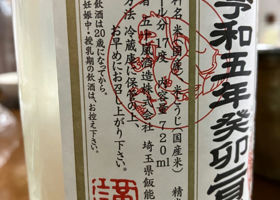 令和五年癸卯
料名 米(国産)、米こうじ(国産米) 精米
ル分 17度 内容量 720ml
五十嵐酒造株式会社 埼玉県飯能
方法 冷蔵庫に保管の上、
お早めにお召し上がり下さい。
飲酒は20歳になってから。
妊娠中・授乳期の飲酒は、お控え下さい。